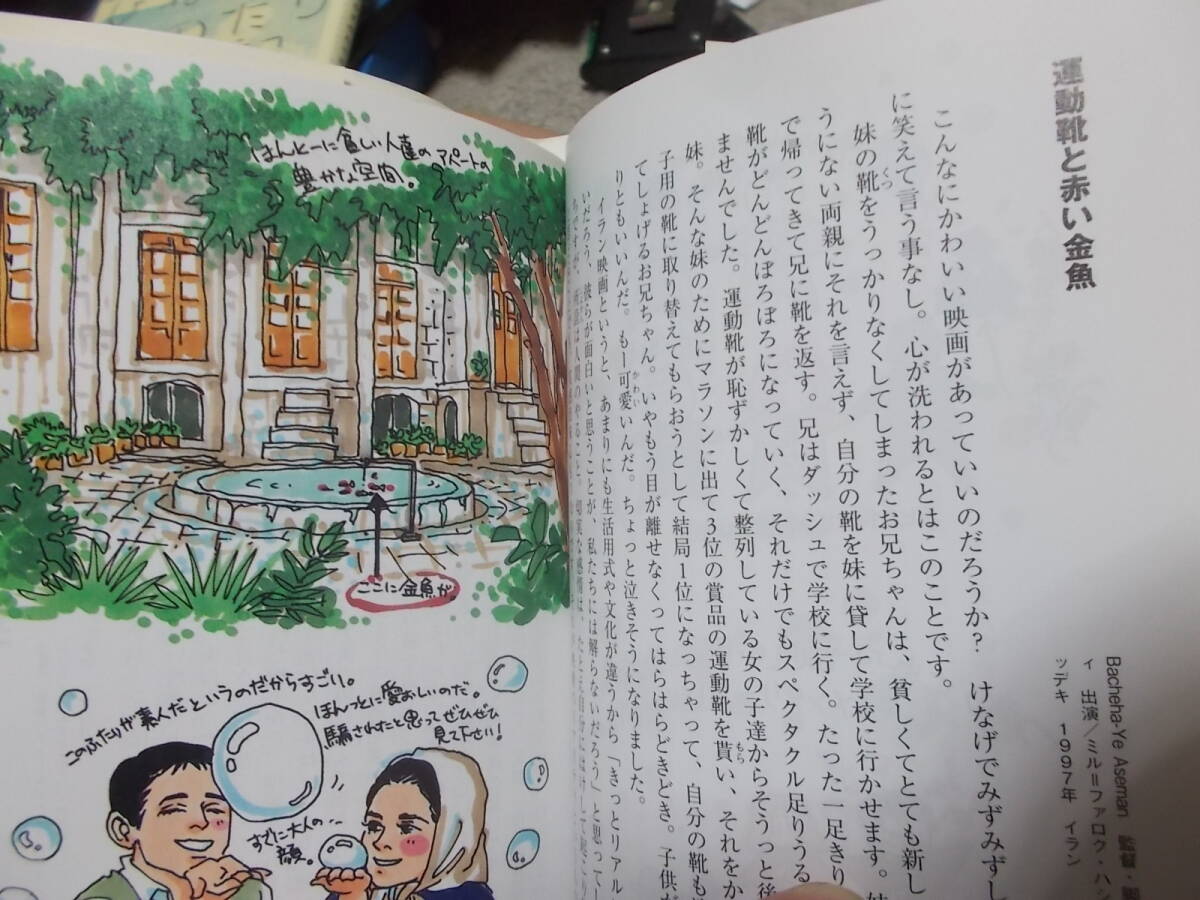 運動靴と赤い金魚
Bacheha-Ye Aseman 監督・脚
ィ 出演/ミル=ファロク・ハシ
ッデキ 1997年 イラン
こんなにかわいい映画があっていいのだろうか? けなげでみずみずし
に笑えて言う事なし。心が洗われるとはこのことです。
妹の靴をうっかりなくしてしまったお兄ちゃんは、貧しくてとても新し
うにない両親にそれを言えず、自分の靴を妹に貸して学校に行かせます。妹
で帰ってきて兄に靴を返す。兄はダッシュで学校に行く。たった一足きり
靴がどんどんぼろぼろになっていく、それだけでもスペクタクル足りうる
ませんでした。運動靴が恥ずかしくて整列している女の子達からそうっと後
妹。そんな妹のためにマラソンに出て3位の賞品の運動靴を貰い、それをか
子用の靴に取り替えてもらおうとして結局1位になっちゃって、自分の靴も
てしょげるお兄ちゃん。いやもう目が離せなくってはらはらどきどき。子供だ
りともいいんだ。もー可愛いんだ。ちょっと泣きそうになりました。
イラン映画というと、あまりにも生活用式や文化が違うから「きっとリアル
いだろう、彼らが面白いと思うことが、私たちには解らないだろう」と思ってし
ほんとーに貧しい人達のアパートの
豊かな空間。
ここに金魚が。
このふたりが素人だというのだからすごい。
ほんっとに愛おしいのだ。
騙されたと思ってぜひぜひ
見て下さい!
すでに大人の‥
顔。